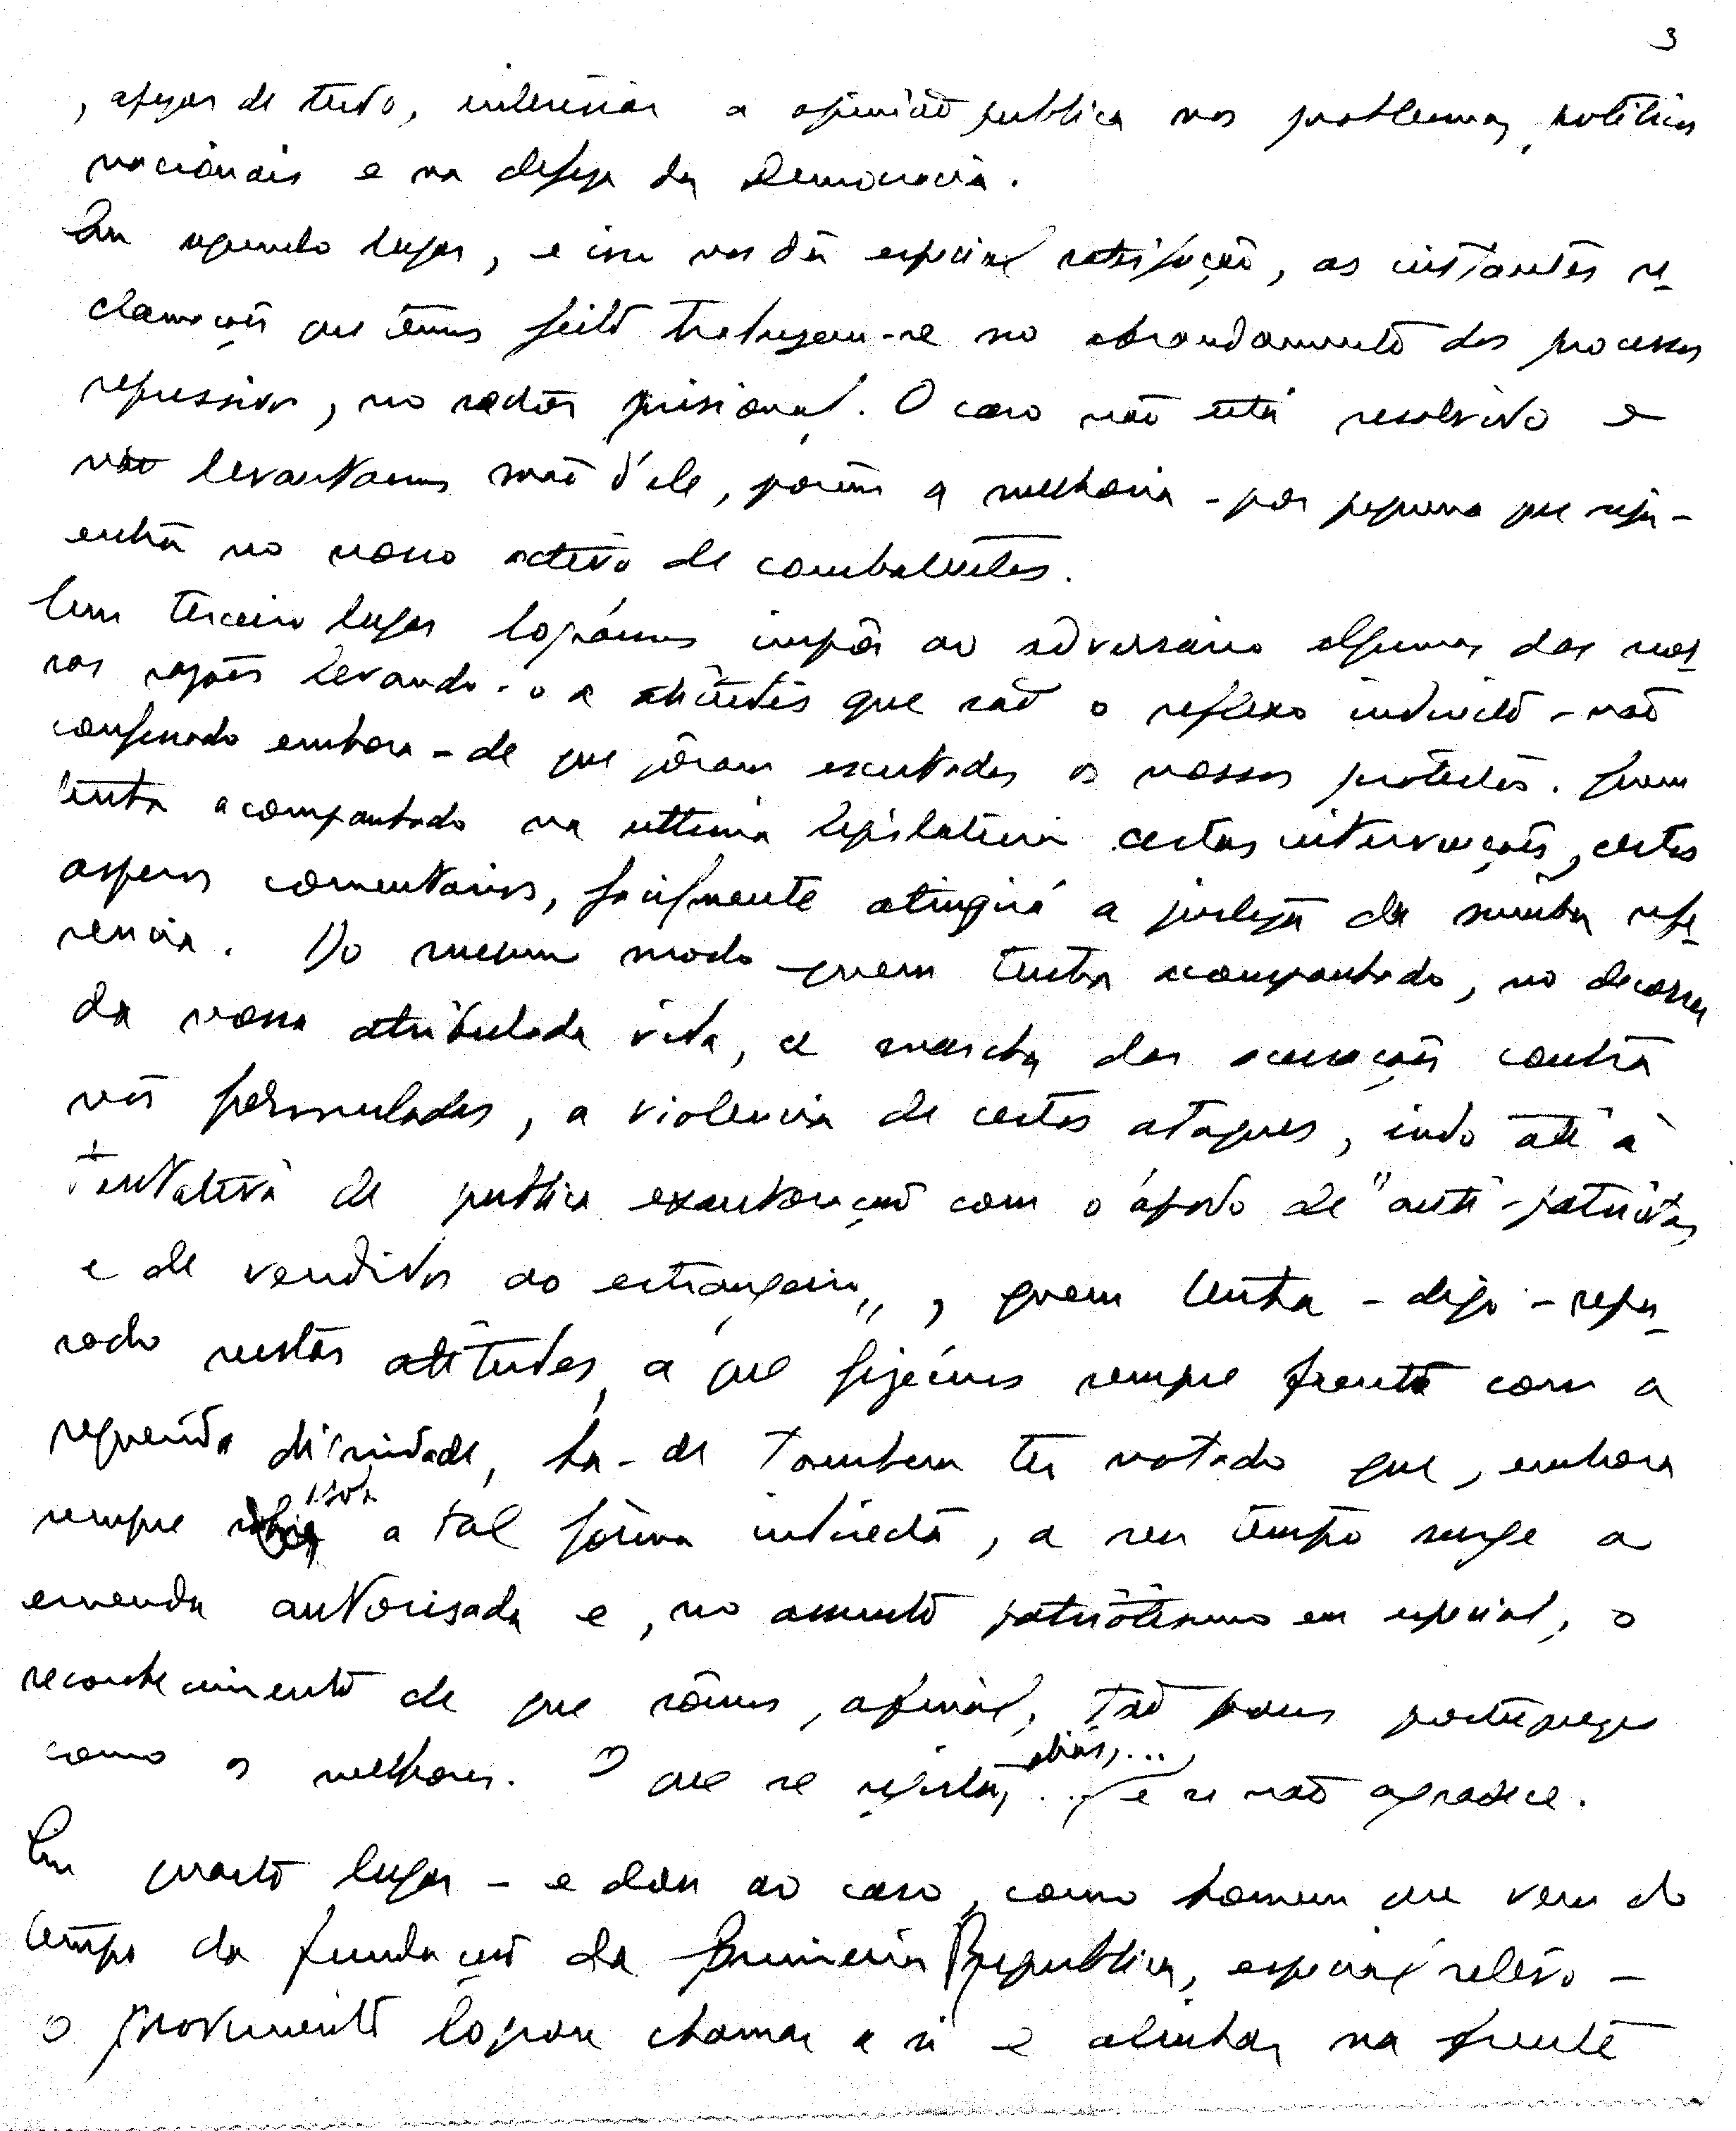 3
, apezar de tudo, interessar a opinião publica nos problemas politicos
nacionais e na defeza da Democracia.
Em segundo lugar, e isso nos dá especial satisfação, as instantes re-
clamações que temos feito traduzem-se no abrandamento dos processos
repressivos, no sector prisional. O caso não está resolvido e
não levantamos mão d'ele, porém a melhoria - por pequena que seja -
entra no nosso activo de combatentes.
Em terceiro lugar lográmos impôr ao adversário algumas das nos-
sas razões levando-o a atitudes que são o reflexo indirecto - não
confessado embora - de que fôram escutados os nossos protestos. Quem
tenha acompanhado na ultima legislatura certas intervenções, certos
asperos comentarios, facilmente atingirá a justeza da minha refe-
rencia. Do mesmo modo quem tenha acompanhado, no decorrer
da nossa atribulada vida, a marcha das acusações contra
nós formuladas, a violencia de certos ataques, indo até à
tentativa de publica exautoração com o ápodo de "anti-patriotas
e de vendidos ao estrangeiro", quem tenha - digo - repa-
rado nestas atitudes, a que fizémos sempre frente com a
requerida dignidade, ha-de tambem ter notado que, embora
sempre sob a tal fórma indirecta, a seu tempo surge a
emenda autorisada e, no assunto patriotismo em especial, o
reconhecimento de que sômos, afinal, tão bons portuguezes
como os melhores. O que se regista, aliás,... e se não agradece.
Em quarto lugar - e dou ao caso, como homem que vem do
tempo da fundação da Primeira Republica, especial relêvo -
o movimento lógrou chamar a si e alinhar na frente